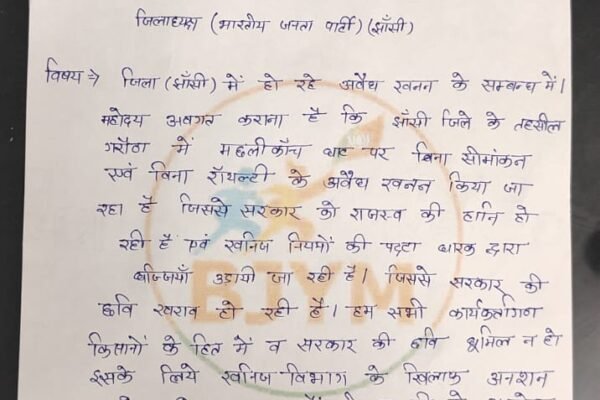 जिलाध्यक्ष (भारतीय जनता पार्टी) (झाँसी)
विषय ⇒ जिला (झाँसी) में हो रहे अवैध खनन के सम्बन्ध में।
महोदय अवगत कराना है कि झाँसी जिले के तहसील
गरौठा में मछलीकाँच घाट पर बिना सीमांकन
एवं बिना रॉयल्टी के अवैध खनन किया जा
रहा है जिससे सरकार को राजस्व की हानि हो
रही है एवं खनिज नियमों की पट्टा धारक द्वारा
धज्जियाँ उडायी जा रही है। जिससे सरकार की
छवि खराब हो रही है। हम सभी कार्यकर्तागण
किसानों के हित में व सरकार की छवि धूमिल न हो
इसके लिये खनिज विभाग के खिलाफ अनशन
BJYM